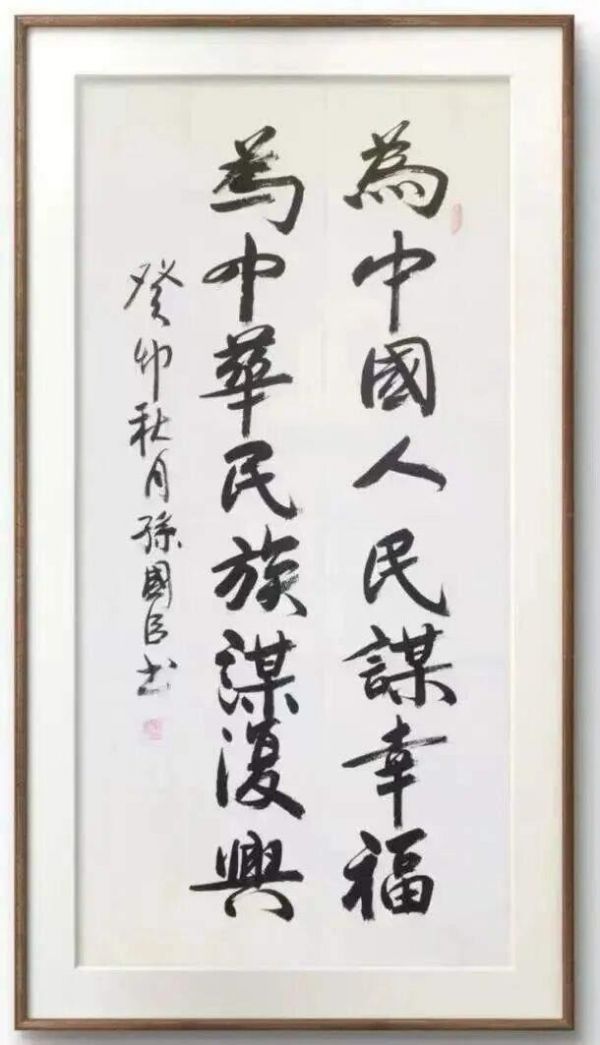 為中國人民謀幸福
為中華民族謀復興
癸卯秋月孫國良書